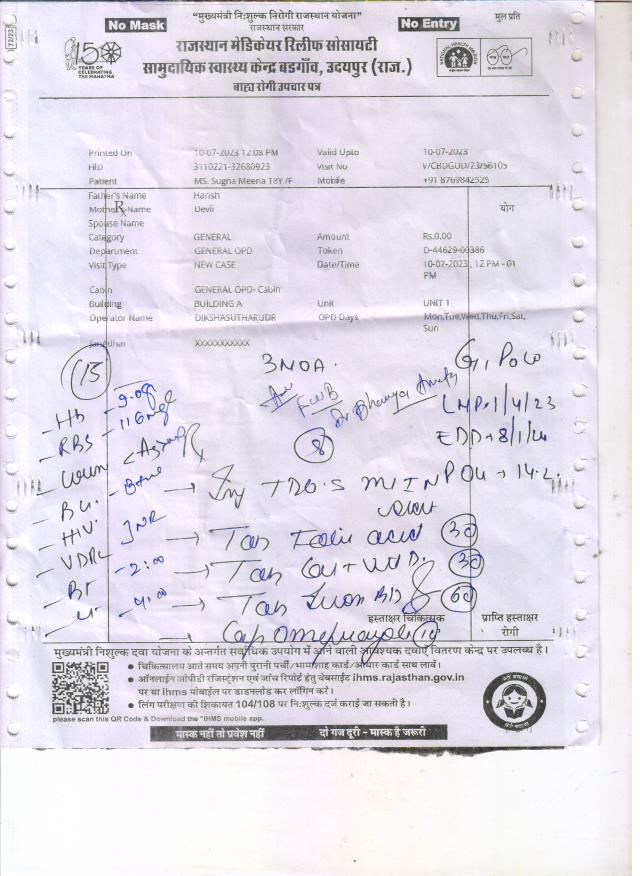 "मुख्यमंत्री नि:शुल्क निरोगी राजस्थान योजना"
राजस्थान सरकार
मुल प्रति
No Mask
No Entry
राजस्थान मेडिकेयर रिलीफ सोसायटी
सामुदायिक स्वास्थ्य केन्द्र बडगाँव, उदयपुर (राज.)
बाह्य रोगी उपचार पत्र
150 YEARS OF CELEBRATING THE MAHATMA
Printed On 10-07-2023 12:08 PM Valid Upto 10-07-2023
HID 3110221-32680923 Visit No V/CBDGUD/23/56105
Patient MS. Sugna Meena 18Y /F Mobile +91 8769842525
Father's Name Harish
Mother's Name Devli
Rx
योग
Spouse Name
Category GENERAL Amount Rs.0.00
Department GENERAL OPD Token D-44629-00386
Visit Type NEW CASE Date/Time 10-07-2023 , 12 PM - 01 PM
Cabin GENERAL OPD- Cabin
Building BUILDING A Unit UNIT 1
Operator Name DIKSHASUTHARUDR OPD Days Mon,Tue,Wed,Thu,Fri,Sat, Sun
Janadhar XXXXXXXXXXX
15
3MOA.
G1P0L0
Hb - 9.0g
FWB
LMP 1/4/23
RBS - 116mg
EDD 8/1/24
8
Urine
BG. - B+ve
Inj TDO.5 M IN
POG 14.2
HIV
VDRL
Tab Folic acid 30
BT - 2:00
Tab Cal + Vit D. 30
CT - 4:00
Tab Iron BD 60
Cap Omeprazole 10
हस्ताक्षर चिकित्सक
प्राप्ति हस्ताक्षर रोगी
मुख्यमंत्री निशुल्क दवा योजना के अन्तर्गत सर्वाधिक उपयोग में आने वाली आवश्यक दवाएं वितरण केन्द्र पर उपलब्ध है।
चिकित्सालय आते समय अपनी पुरानी पर्ची/भामाशाह कार्ड/आधार कार्ड साथ लावें।
ऑनलाईन ओपीडी रजिस्ट्रेशन एवं जांच रिपोर्ट हेतु वेबसाईट ihms.rajasthan.gov.in
पर या ihms मोबाईल पर डाउनलोड कर लॉगिन करे।
लिंग परीक्षण की शिकायत 104/108 पर नि:शुल्क दर्ज कराई जा सकती है।
please scan this QR Code & Download the "IHMS mobile app.
मास्क नहीं तो प्रवेश नहीं
दो गज दूरी - मास्क है जरूरी